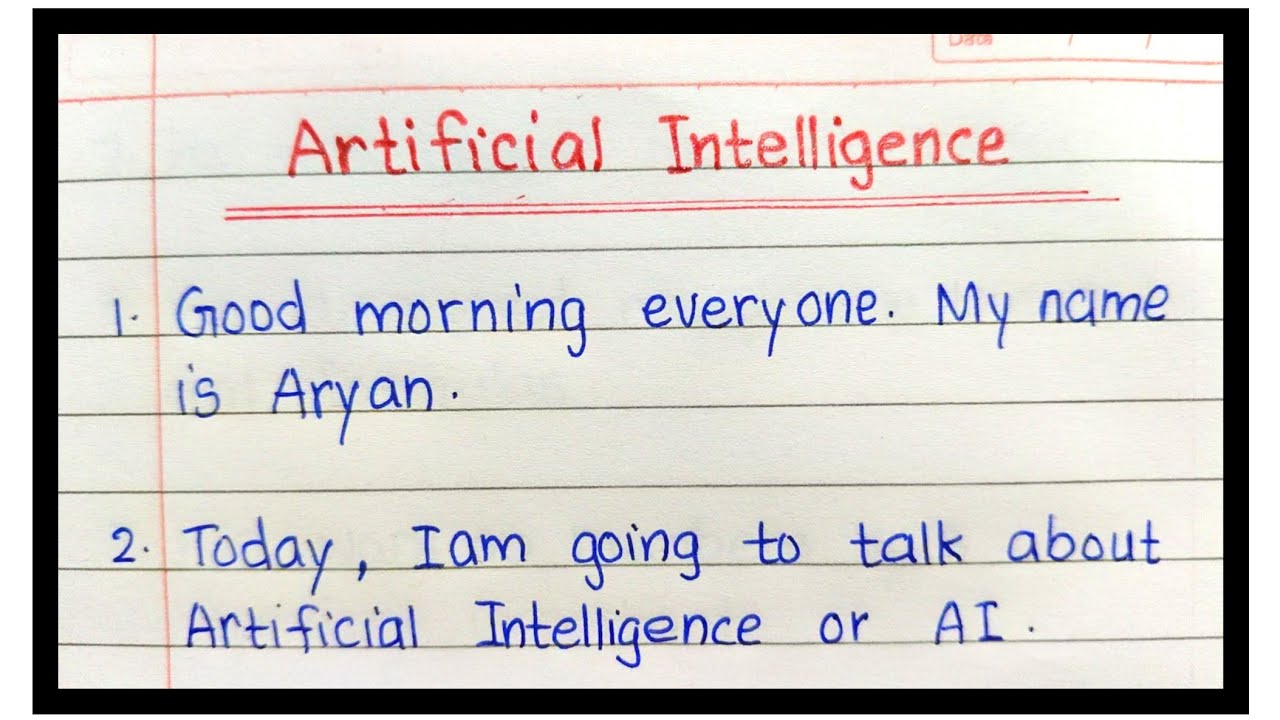 Date / /
Artificial Intelligence
1. Good morning everyone. My name
is Aryan.
2. Today, I am going to talk about
Artificial Intelligence or AI.